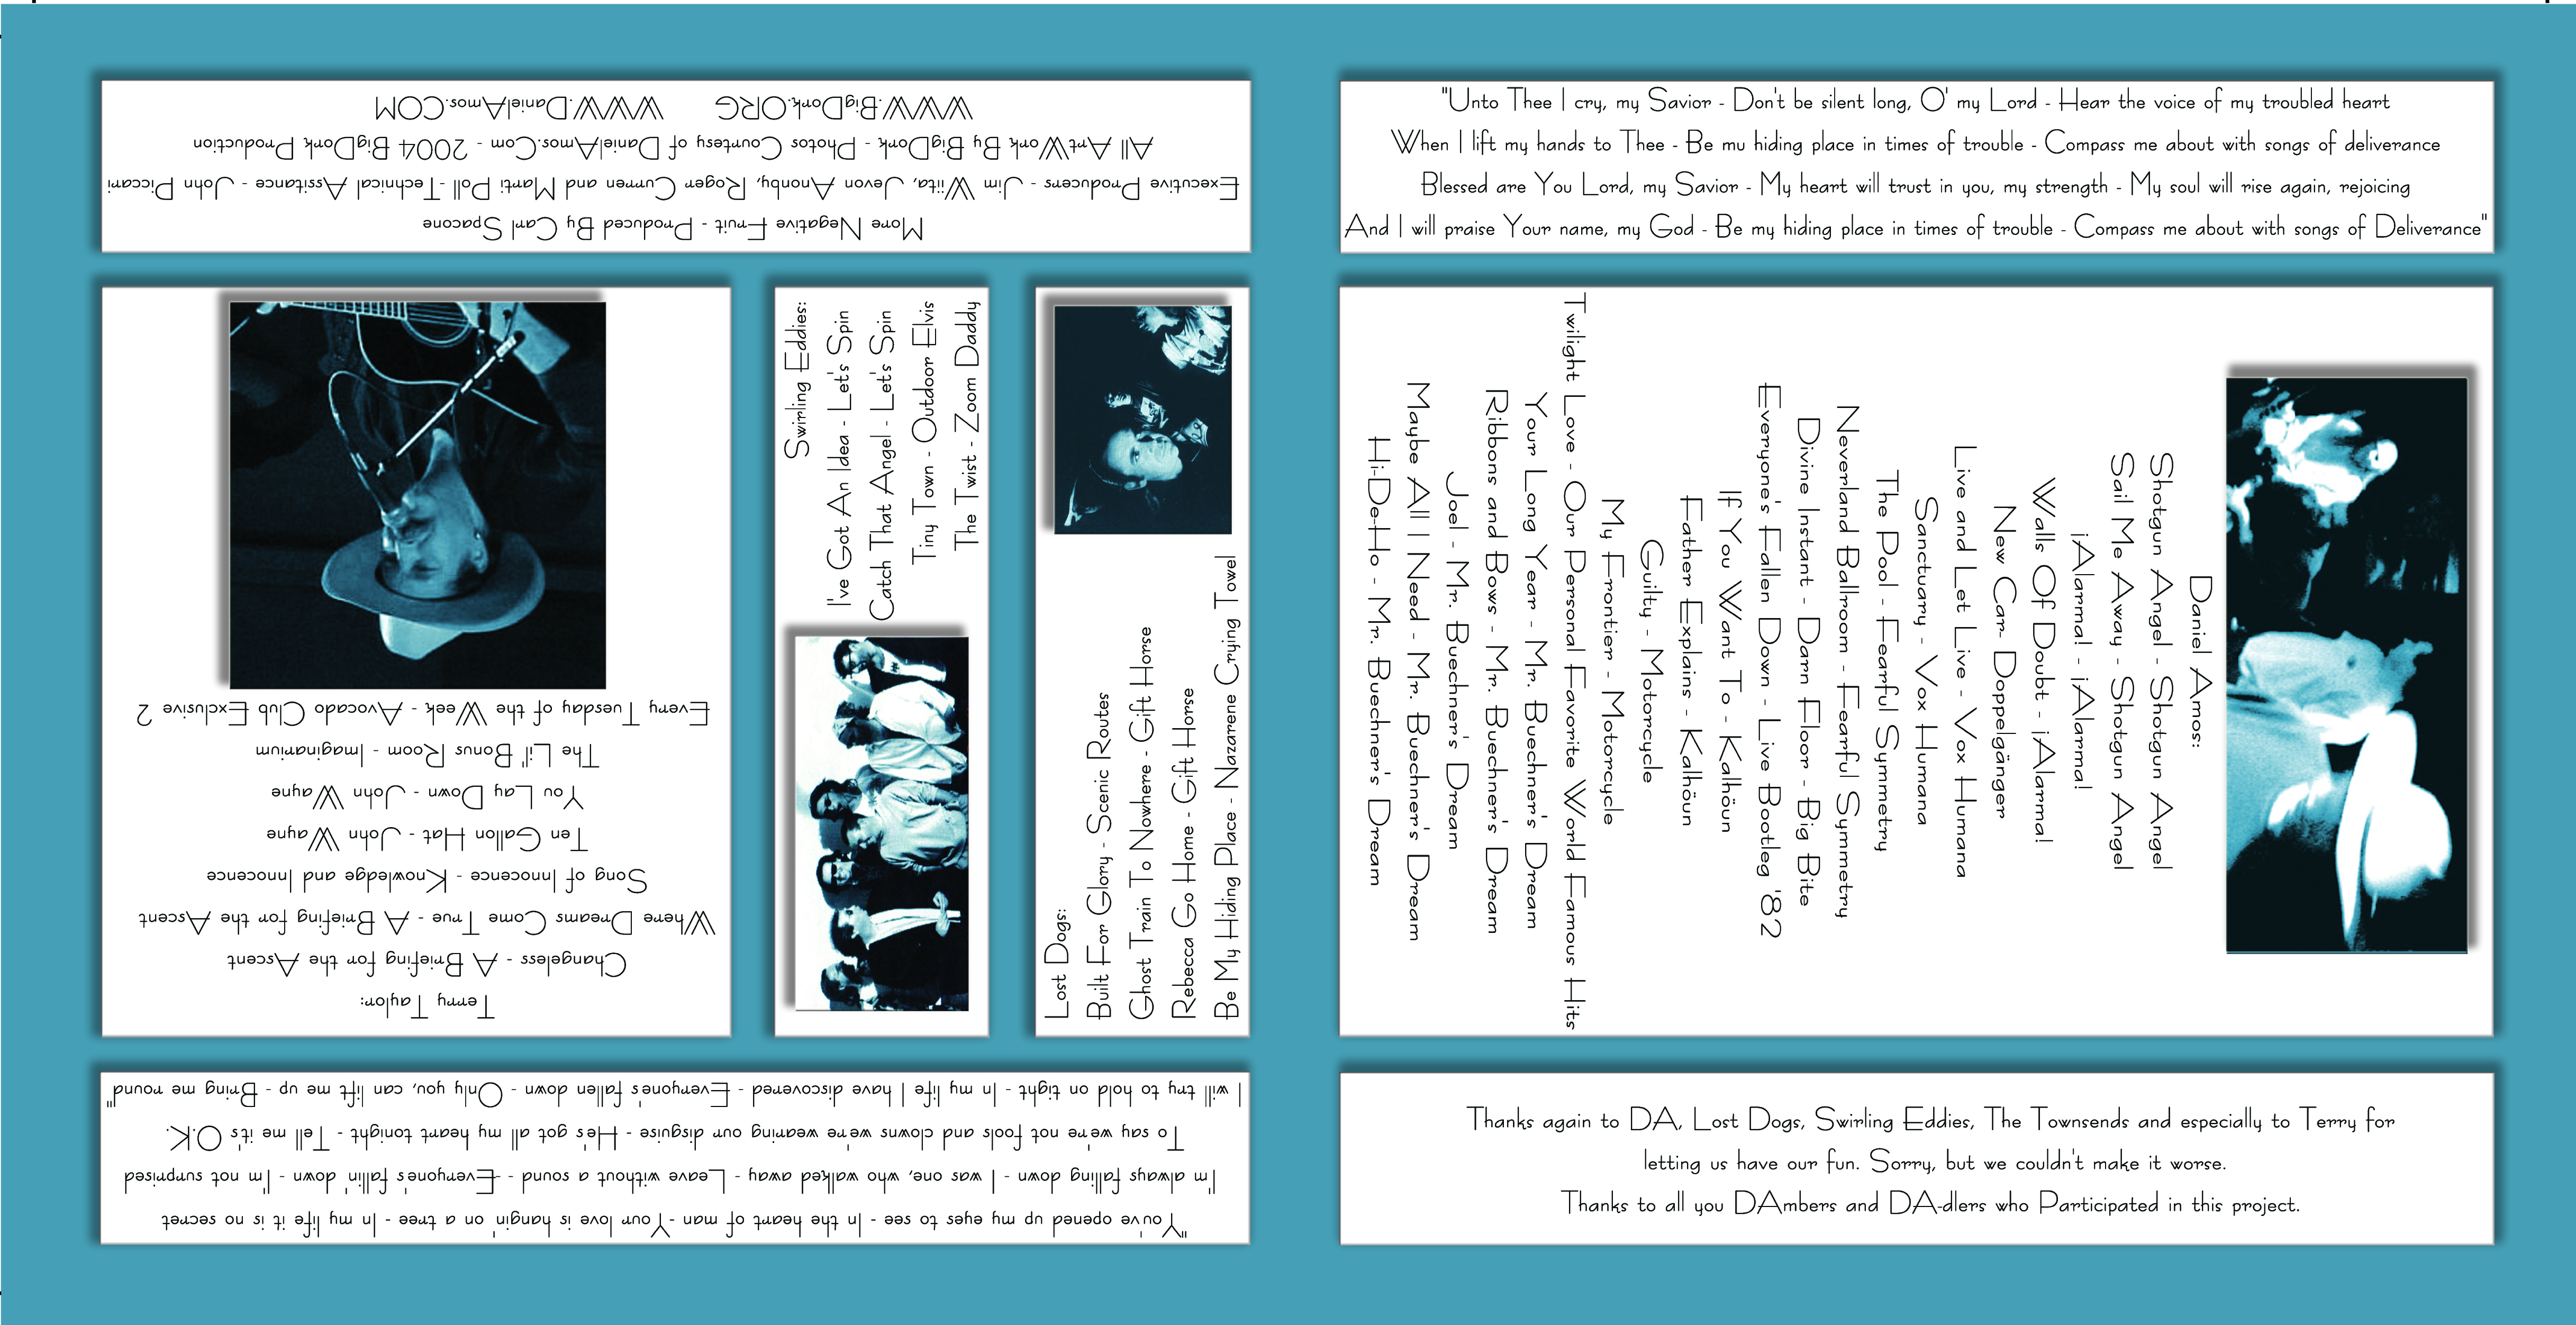 More Negative Fruit - Produced By Carl Spacone
Executive Producers - Jim Wiita, Jevon Anonby, Roger Curren and Marti Poll - Technical Assitance - John Piccari
All ArtWork By BigDork - Photos Courtesy of DanielAmos.Com - 2004 BigDork Production
WWW.BigDork.ORG WWW.DanielAmos.COM
"Unto Thee I cry, my Savior - Don't be silent long, O' my Lord - Hear the voice of my troubled heart
When I lift my hands to Thee - Be mu hiding place in times of trouble - Compass me about with songs of deliverance
Blessed are You Lord, my Savior - My heart will trust in you, my strength - My soul will rise again, rejoicing
And I will praise Your name, my God - Be my hiding place in times of trouble - Compass me about with songs of Deliverance"
Terry Taylor:
Changeless - A Briefing for the Ascent
Where Dreams Come True - A Briefing for the Ascent
Song of Innocence - Knowledge and Innocence
Ten Gallon Hat - John Wayne
You Lay Down - John Wayne
The Lil' Bonus Room - Imaginarium
Every Tuesday of the Week - Avocado Club Exclusive 2
Swirling Eddies:
I've Got An Idea - Let's Spin
Catch That Angel - Let's Spin
Tiny Town - Outdoor Elvis
The Twist - Zoom Daddy
Lost Dogs:
Built For Glory - Scenic Routes
Ghost Train To Nowhere - Gift Horse
Rebecca Go Home - Gift Horse
Be My Hiding Place - Nazarene Crying Towel
Daniel Amos:
Shotgun Angel - Shotgun Angel
Sail Me Away - Shotgun Angel
¡Alarma! - ¡Alarma!
Walls Of Doubt - ¡Alarma!
New Car- Doppelgänger
Live and Let Live - Vox Humana
Sanctuary - Vox Humana
The Pool - Fearful Symmetry
Neverland Ballroom - Fearful Symmetry
Divine Instant - Darn Floor - Big Bite
Everyone's Fallen Down - Live Bootleg '82
If You Want To - Kalhöun
Father Explains - Kalhöun
Guilty - Motorcycle
My Frontier - Motorcycle
Twilight Love - Our Personal Favorite World Famous Hits
Your Long Year - Mr. Buechner's Dream
Ribbons and Bows - Mr. Buechner's Dream
Joel - Mr. Buechner's Dream
Maybe All I Need - Mr. Buechner's Dream
Hi-De-Ho - Mr. Buechner's Dream
"You've opened up my eyes to see - In the heart of man - Your love is hangin' on a tree - In my life it is no secret
I'm always falling down - I was one, who walked away - Leave without a sound - Everyone's fallin' down - I'm not surprised
To say we're not fools and clowns we're wearing our disguise - He's got all my heart tonight - Tell me it's O.K.
I will try to hold on tight - In my life I have discovered - Everyone's fallen down - Only you, can lift me up - Bring me round"
Thanks again to DA, Lost Dogs, Swirling Eddies, The Townsends and especially to Terry for
letting us have our fun. Sorry, but we couldn't make it worse.
Thanks to all you DAmbers and DA-dlers who Participated in this project.